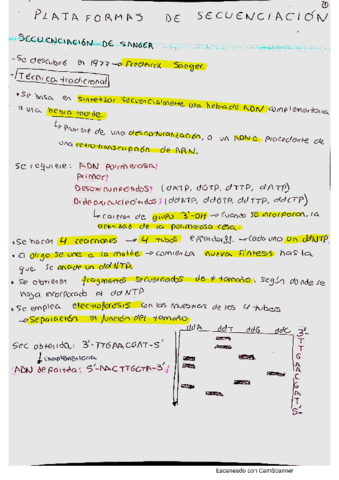 ①
PLATAFORMAS DE SECUENCIACIÓN
SECUENCIACIÓN DE SANGER
- Se descubrió en 1977 → Frederick Sanger.
- Técnica tradicional
• Se basa en sintetizar secuencialmente una hebra de ADN complementaria
a una hebra molde.
↳ Proviene de una desnaturalización, o un ADNc procedente de
una retrotranscripción de ARN.
Se requiere: ADN polimerasa
primer
Desoxinucleótidos (dATP, dGTP, dTTP, dCTP)
Dideoxinucleótidos (ddATP, ddGTP, ddTTP, ddCTP)
↳ carecen de grupo 3'-OH → cuando se incorporan, la
actividad de la polimerasa cesa.
• Se hacen 4 reacciones → 4 tubos → cada uno un ddNTP.
• El oligo se une a la molde → comienza nueva síntesis hasta
que se añade un ddNTP.
• Se obtienen fragmentos secuenciados de ≠ tamaño, según donde se
haya incorporado el ddNTP.
• Se emplea electroforesis con las muestras de los 4 tubos
→ Separación en función del tamaño.
ddA ddT ddG ddC 3'-
T
T
G
A
A
C
G
A
T
5'-
Sec obtenida: 3'-TTGAACGAT-5'
↓ complementaria
ADN de partida: 5'-AACTTGCTA-3'
Escaneado con CamScanner